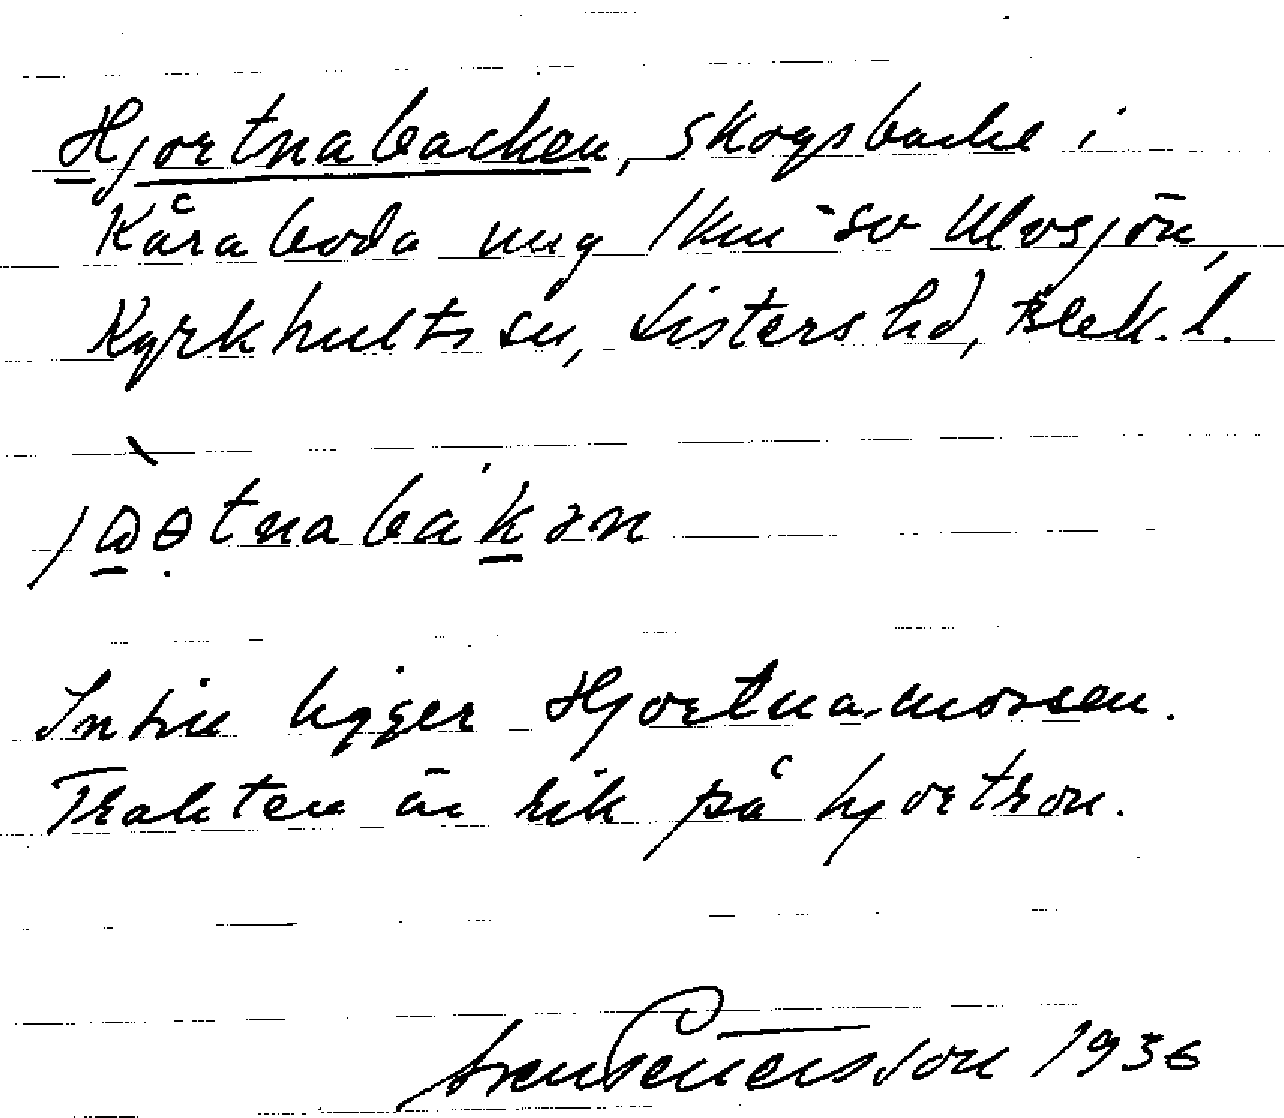 Hjortnabacken, skogsbacke i
Kåraboda ung 1 km so Ulvsjön,
Kyrkhults sn, Listers hd, Blek. l.
jɷətnabakən
Intill ligger Hjortnamossen.
Trakten är rik på hjortron.
Sven Pettersson 1936